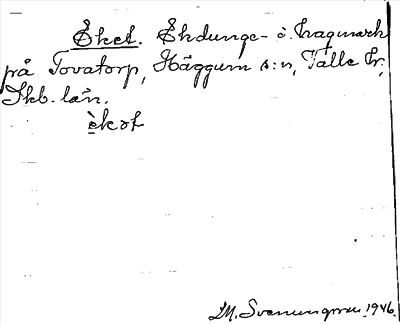 Eket. Ekdunge- o. hagmark
på Tovatorp, Häggum s:n, Valle hr,
Skb. län.
èkət
M. Svenungsson 1946.